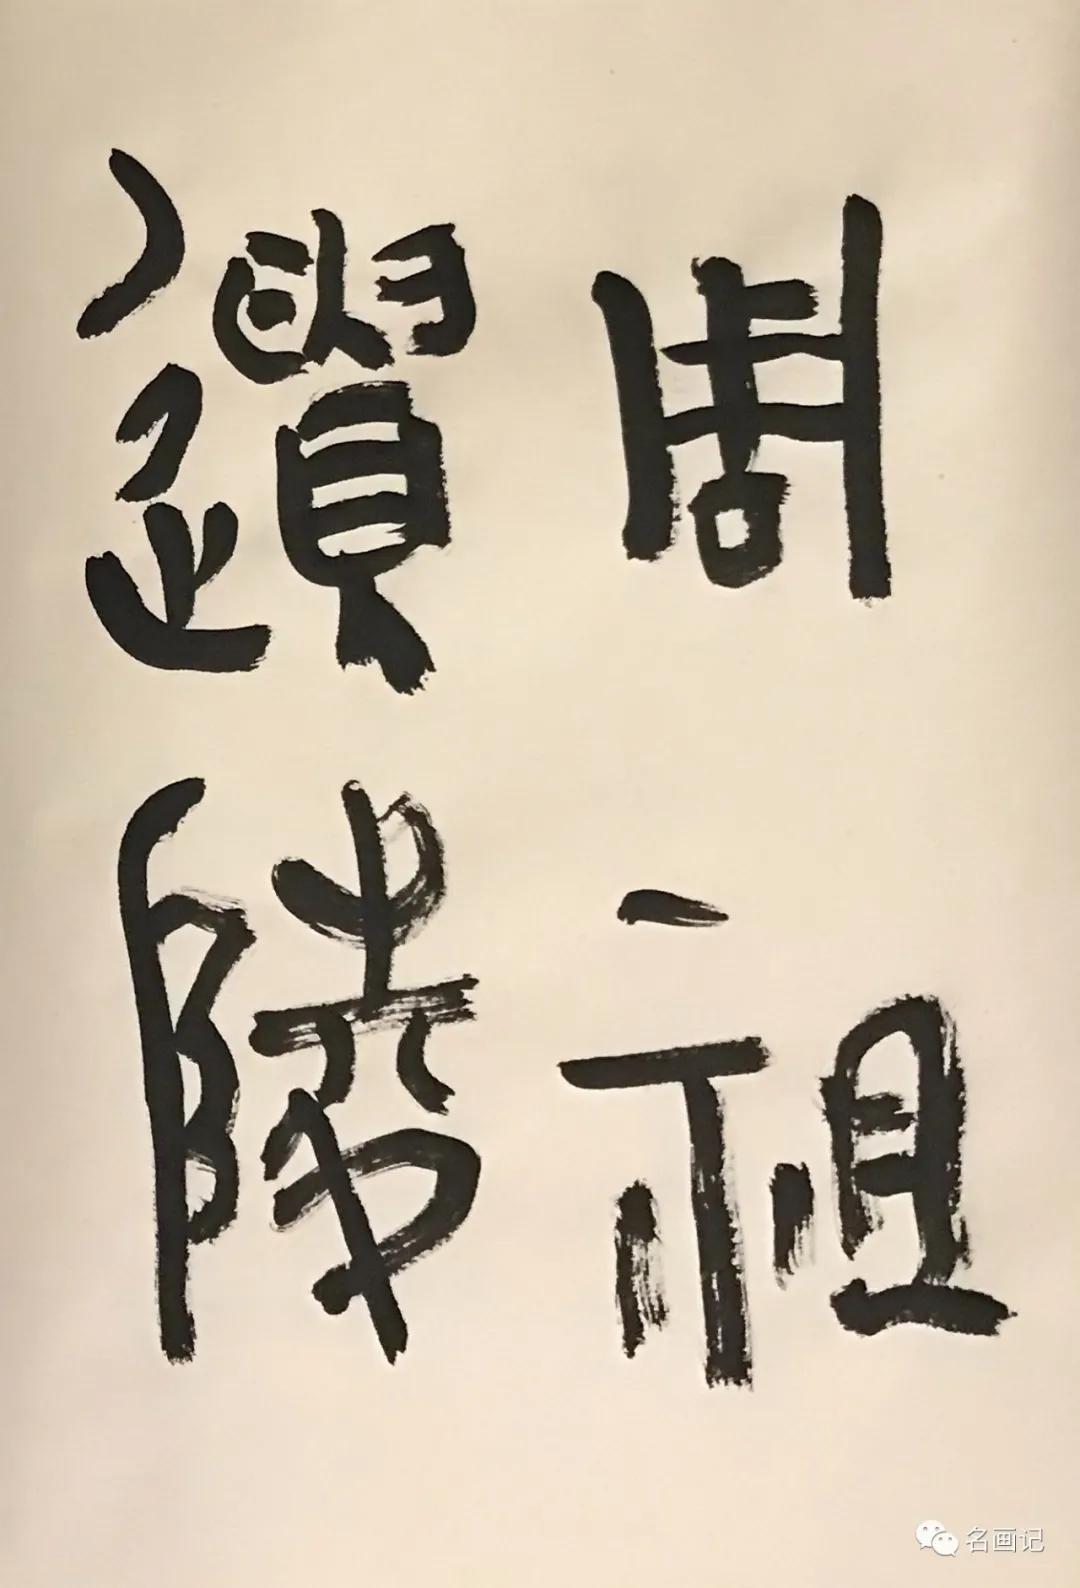 周祖
遺陵
名画记